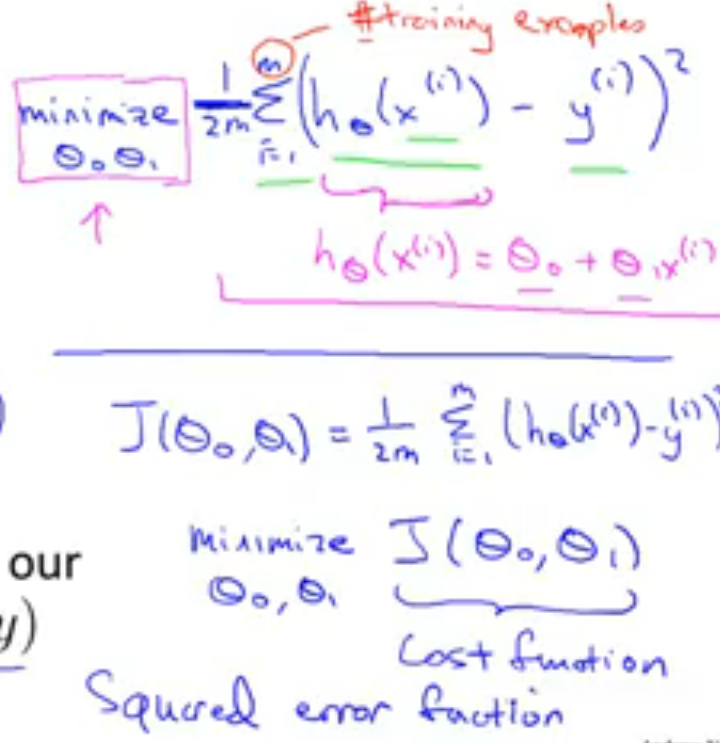 #training examples
minimize 1/2m Σ i=1 m (hθ(x^(i)) - y^(i))²
θ₀ θ₁
hθ(x^(i)) = θ₀ + θ₁x^(i)
J(θ₀,θ₁) = 1/2m Σ i=1 m (hθ(x^(i)) - y^(i))²
minimize J(θ₀, θ₁)
θ₀, θ₁
our
y)
Cost function
Squared error faction